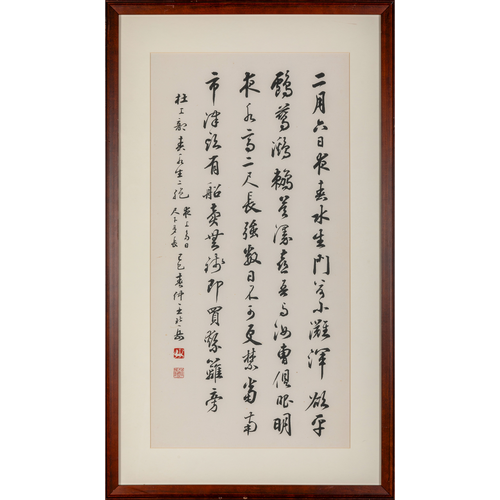 二月六日夜春水生門前小灘渾欲平
鸕鶿鸂鶒莫漫喜吾與汝曹俱眼明
夜水高二尺長強數日不可更禁當南
市津頭有船賣無錢即買繫籬旁
杜工部春水生二絕
夜上多日
尺下多長
己巳春仲